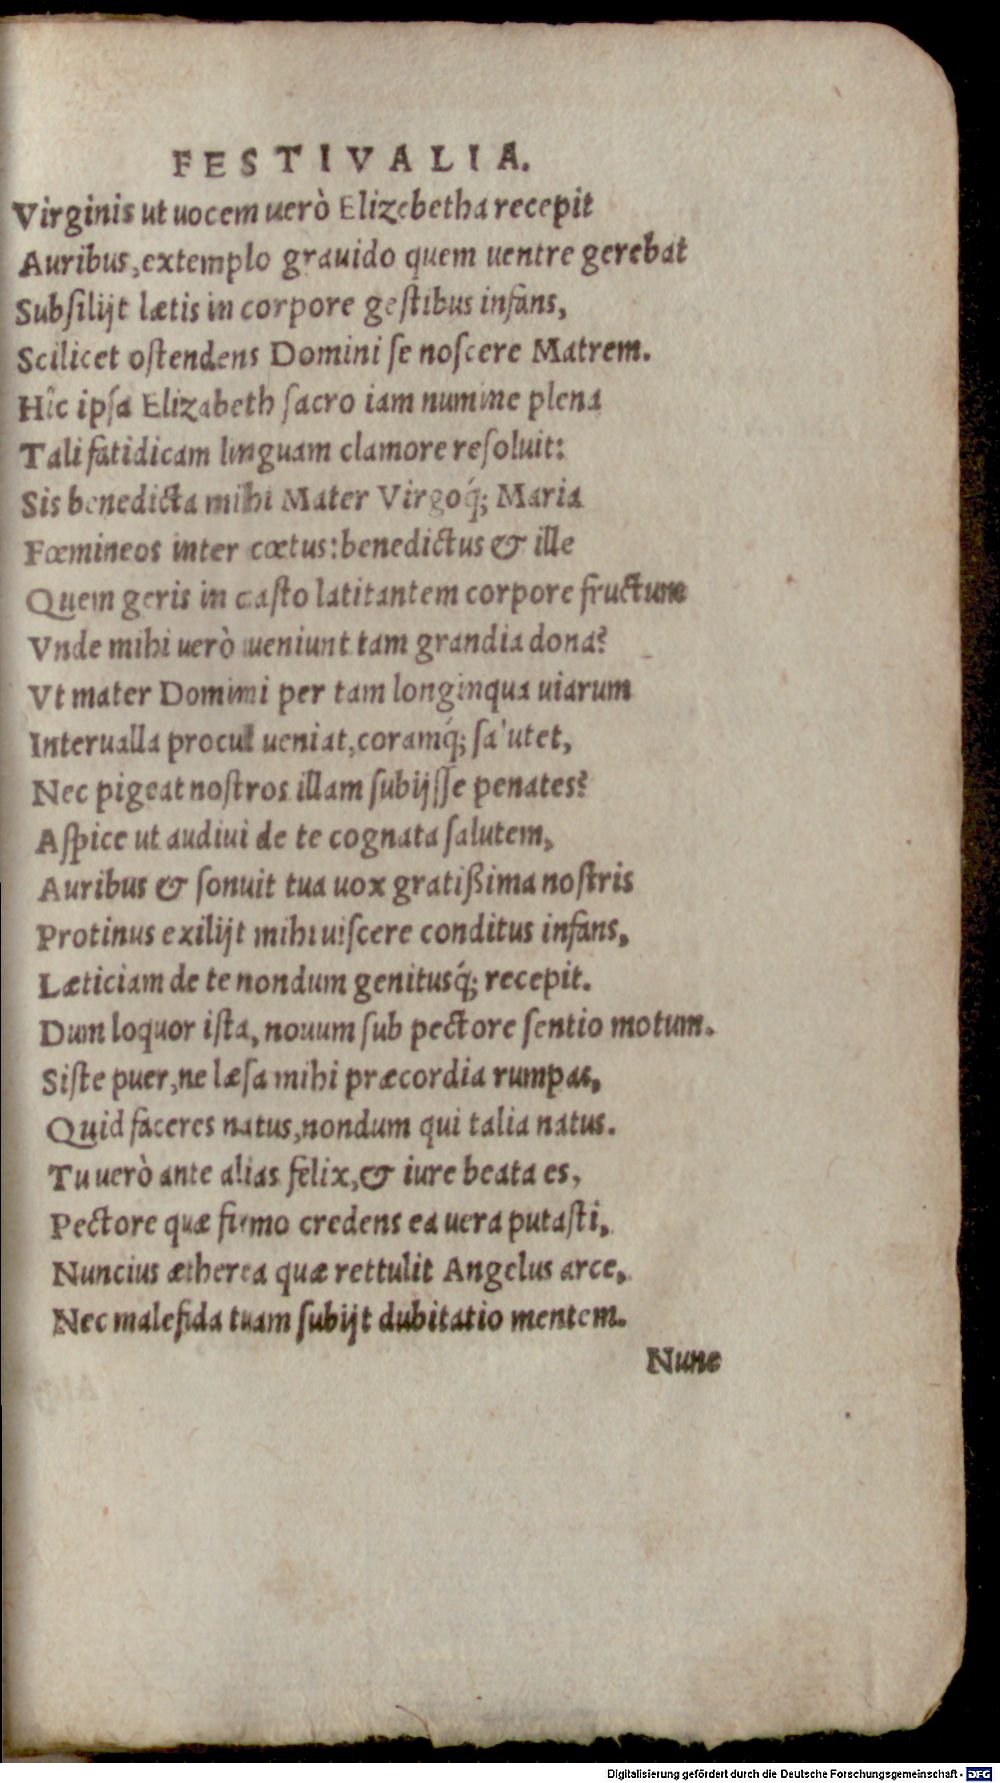 FESTIVALIA.
Virginis ut uocem uerò Elizebetha recepit
Auribus, extemplo grauido quem uentre gerebat
Subſilijt lætis in corpore geſtibus infans,
Scilicet oſtendens Domini ſe noſcere Matrem.
Hîc ipſa Elizabeth ſacro iam numine plena
Tali fatidicam linguam clamore reſoluit:
Sis benedicta mihi Mater Virgoq́; Maria
Fœmineos inter cœtus: benedictus & ille
Quem geris in caſto latitantem corpore fructum
Vnde mihi uerò ueniunt tam grandia dona?
Vt mater Domini per tam longinqua uiarum
Interualla procul ueniat, coramq́; ſalutet,
Nec pigeat noſtros illam ſubijſſe penates?
Aſpice ut audiui de te cognata ſalutem,
Auribus & ſonuit tua uox gratißima noſtris
Protinus exilijt mihi uiſcere conditus infans,
Læticiam de te nondum genitusq́; recepit.
Dum loquor iſta, nouum ſub pectore ſentio motum.
Siſte puer, ne læſa mihi præcordia rumpas,
Quid faceres natus, nondum qui talia natus.
Tu uerò ante alias felix, & iure beata es,
Pectore quæ firmo credens ea uera putaſti,
Nuncius ætherea quæ rettulit Angelus arce,
Nec malefida tuam ſubijt dubitatio mentem.
Nunc
Digitalisierung gefördert durch die Deutsche Forschungsgemeinschaft - DFG